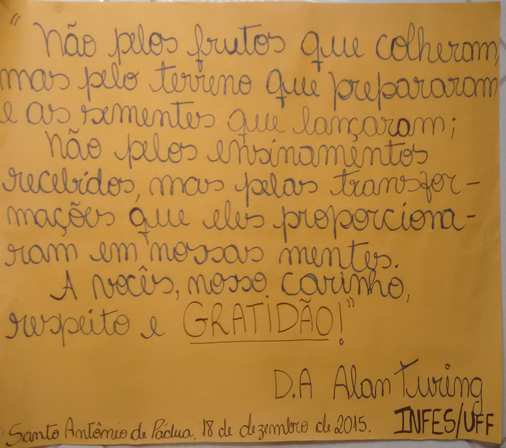 "Não pelos frutos que colheram,
mas pelo terreno que prepararam
e as sementes que lançaram;
Não pelos ensinamentos
recebidos, mas pelas transfor-
mações que eles proporciona-
ram em nossas mentes.
A vocês, nosso carinho,
respeito e GRATIDÃO!"
D.A Alan Turing
Santo Antônio de Pádua, 18 de dezembro de 2015. INFES/UFF